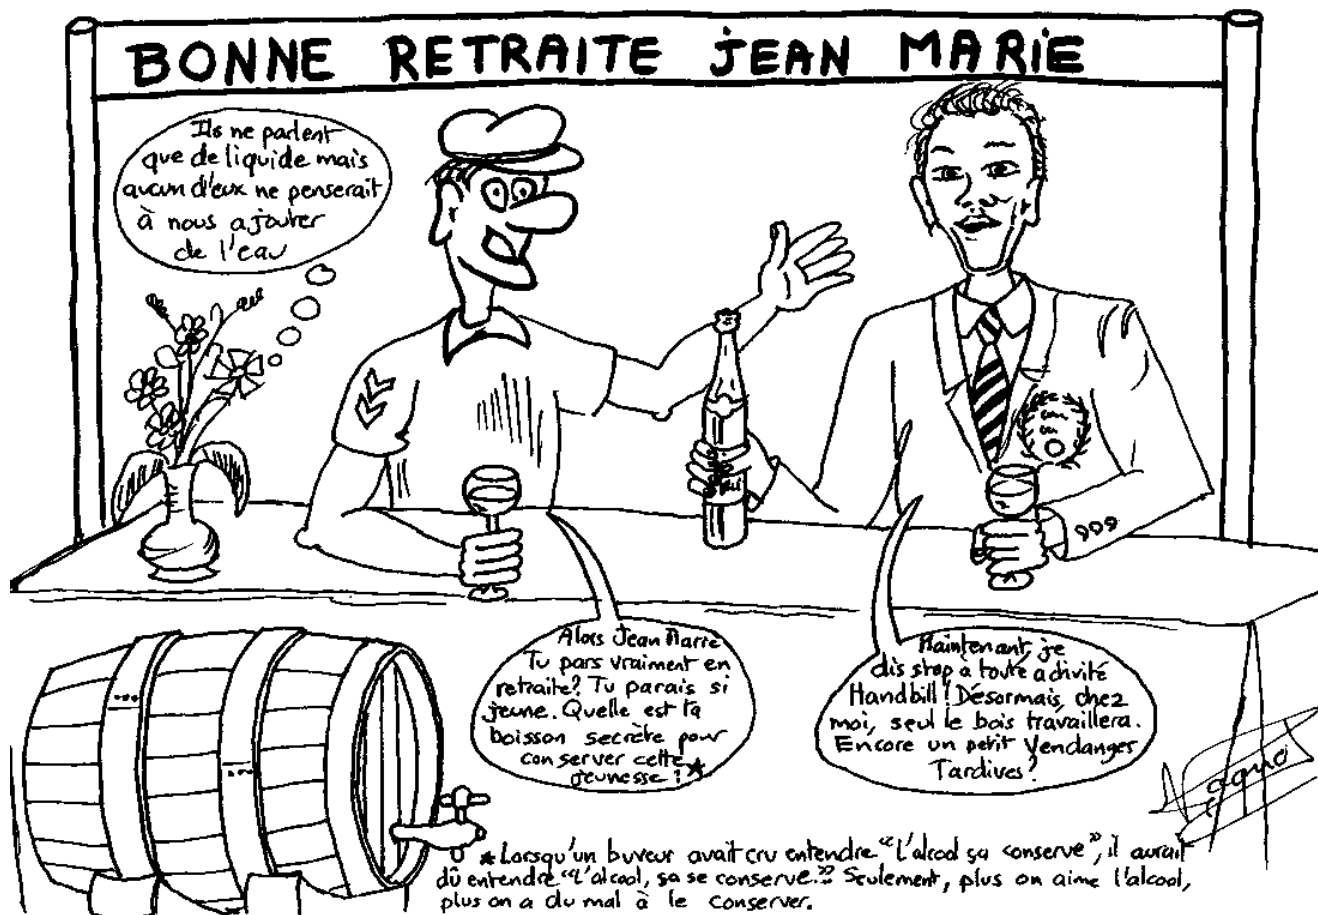 BONNE RETRAITE JEAN MARIE
Ils ne parlent
que de liquide mais
aucun d'eux ne penserait
à nous ajouter
de l'eau
Alors Jean Marie
Tu pars vraiment en
retraite? Tu parais si
jeune. Quelle est ta
boisson secrète pour
conserver cette
jeunesse?*
Maintenant, je
dis stop à toute activité
Handbill! Désormais, chez
moi, seul le bois travaillera.
Encore un petit Vendanges
Tardives?
* Lorsqu'un buveur avait cru entendre "L'alcool ça conserve", il aurait
dû entendre "L'alcool, ça se conserve." Seulement, plus on aime l'alcool,
plus on a du mal à le conserver.